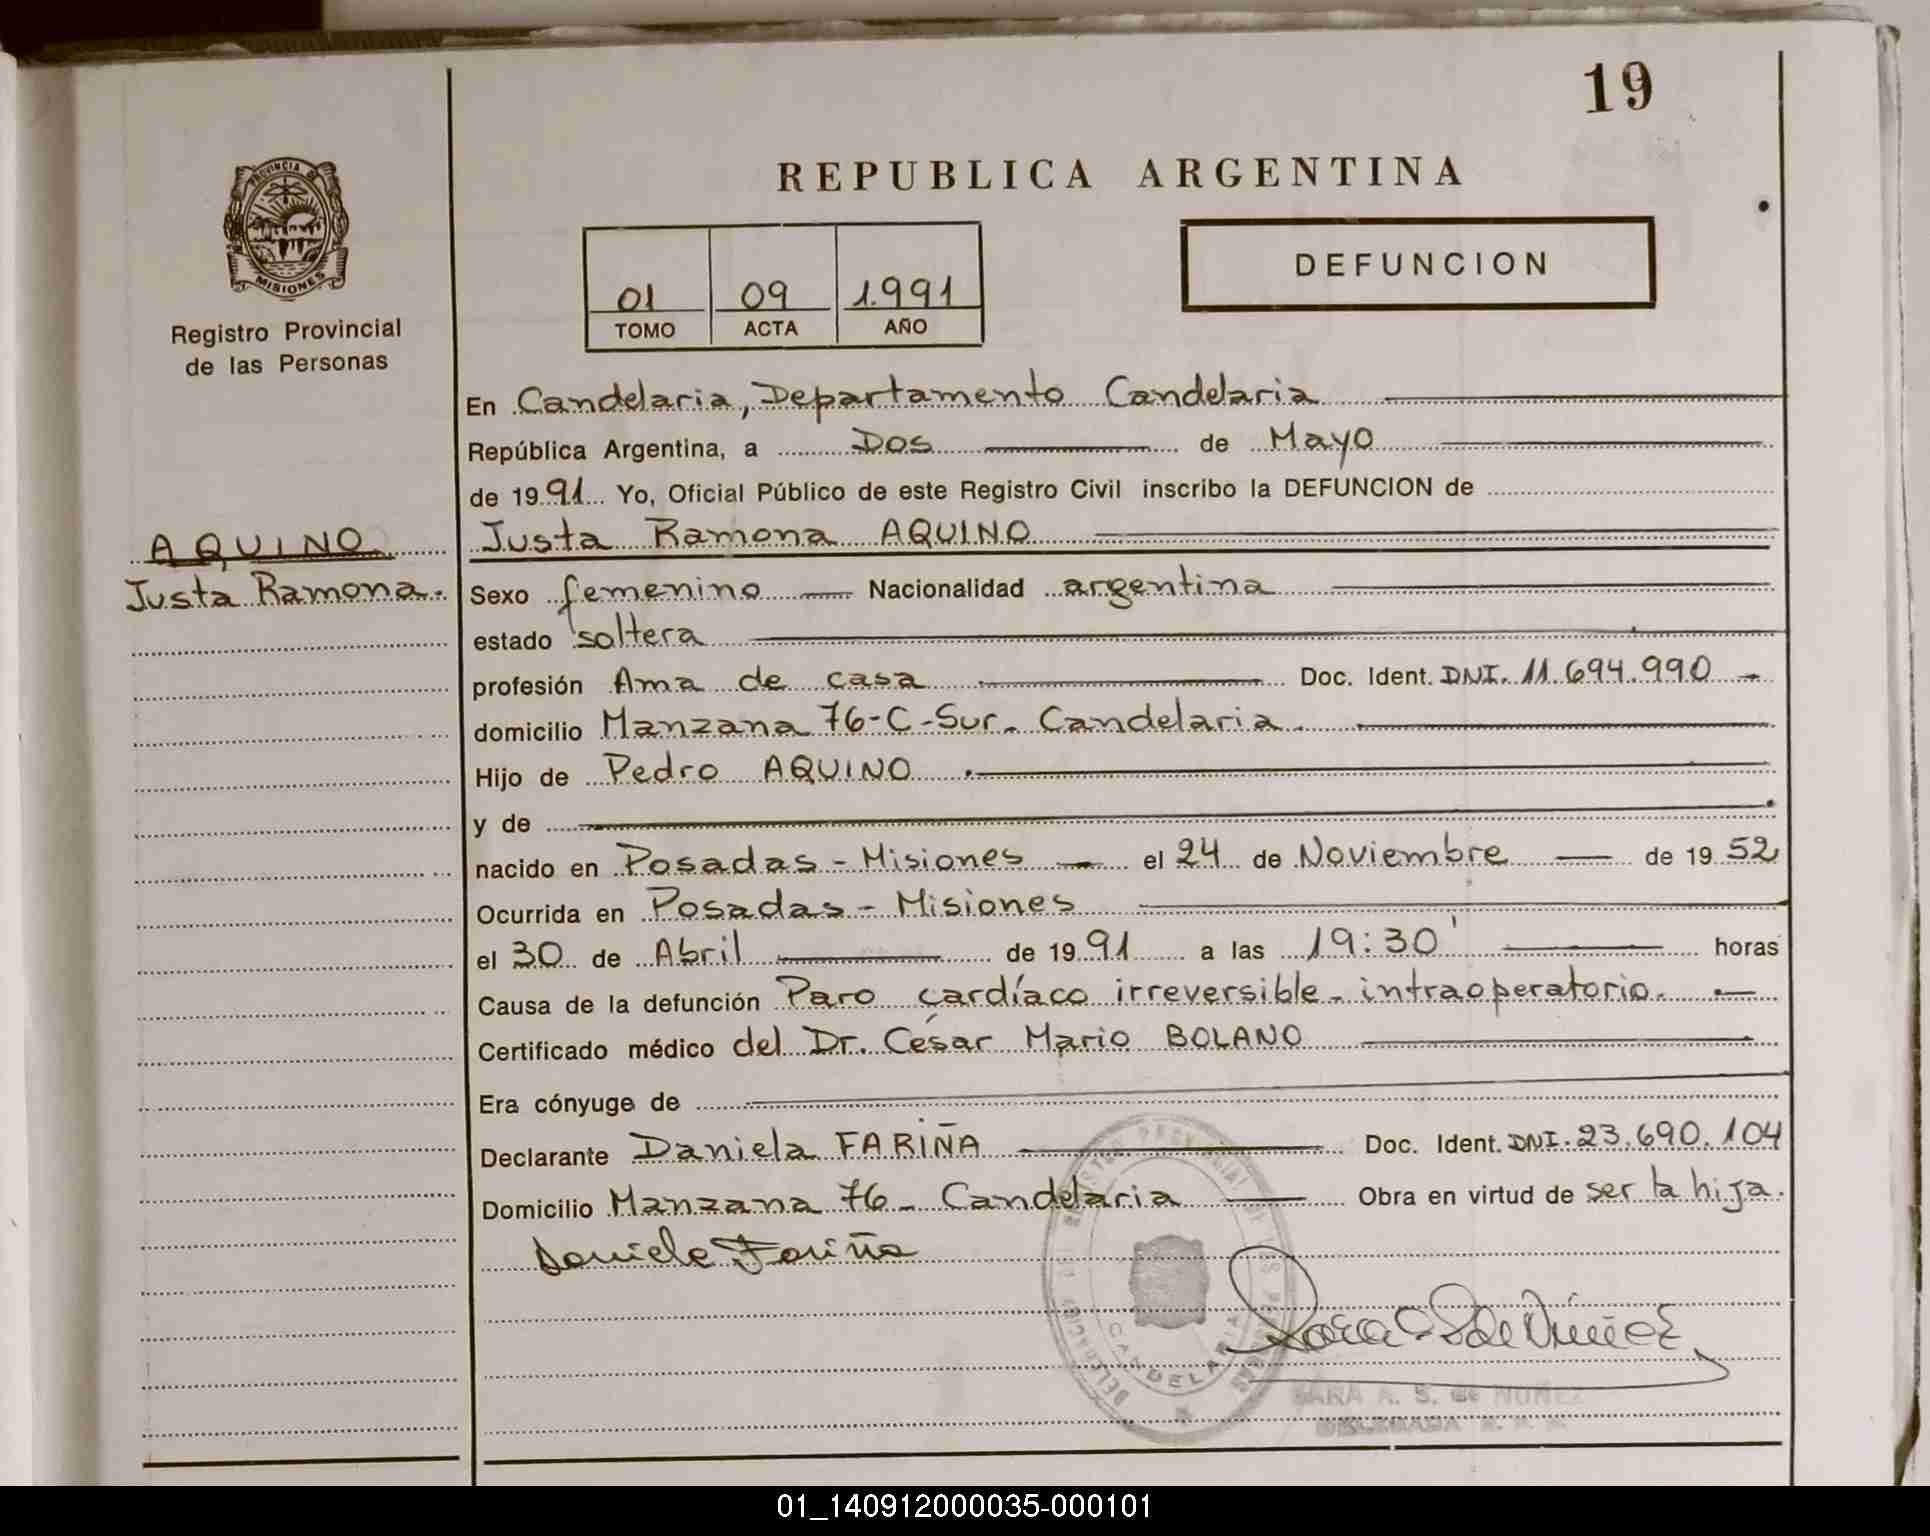 19
PROVINCIA DE
MISIONES
Registro Provincial
de las Personas
REPUBLICA ARGENTINA
01 09 1.991
TOMO ACTA AÑO
DEFUNCION
En Candelaria, Departamento Candelaria
República Argentina, a Dos de Mayo
de 1991 Yo, Oficial Público de este Registro Civil inscribo la DEFUNCION de
AQUINO
Justa Ramona.
Justa Ramona AQUINO
Sexo femenino Nacionalidad argentina
estado soltera
profesión Ama de casa Doc. Ident. DNI. 11.694.990
domicilio Manzana 76-C-Sur. Candelaria.
Hijo de Pedro AQUINO
y de
nacido en Posadas - Misiones el 24 de Noviembre de 1952
Ocurrida en Posadas - Misiones
el 30 de Abril de 1991 a las 19:30' horas
Causa de la defunción Paro cardíaco irreversible - intraoperatorio.
Certificado médico del Dr. César Mario BOLANO
Era cónyuge de
Declarante Daniela FARIÑA Doc. Ident. DNI. 23.690.104
Domicilio Manzana 76 - Candelaria Obra en virtud de ser la hija.
Daniela Fariña
REGISTRO PROVINCIAL DE LAS PERSONAS
DELEGACION
CANDELARIA
SARA A. S. de NUÑEZ
DELEGADA
01_140912000035-000101